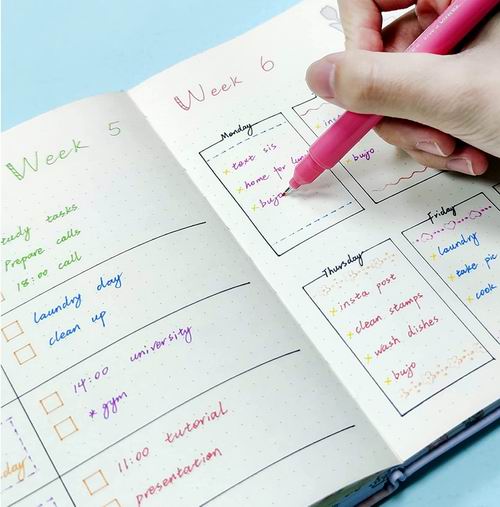 Week 5
study tasks
Prepare calls
18:00 call
laundry day
clean up
14:00 university
* gym
11:00 tutorial
presentation
day
Week 6
Monday
text sis
home for lunch
bujo
bujo
Thursday
insta post
clean stamps
wash dishes
bujo
Friday
laundry
take pic
cook